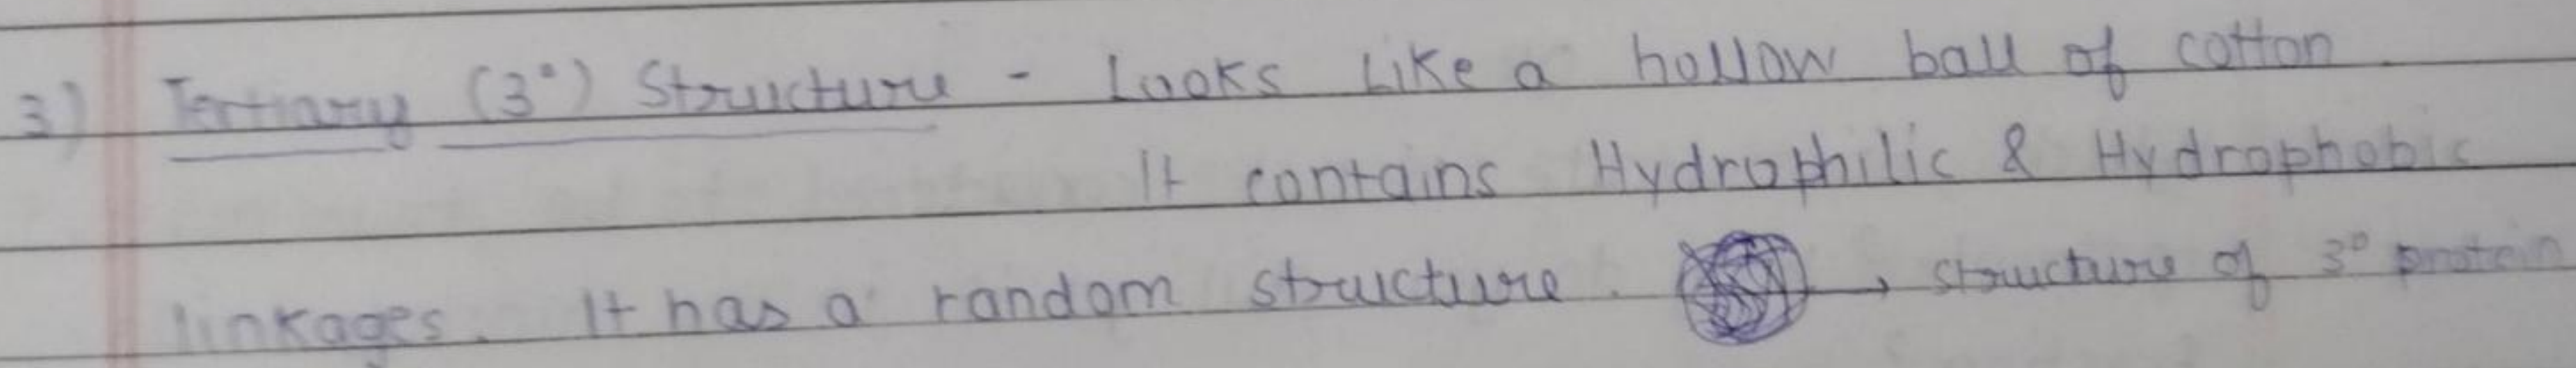 3) Tertiary (3°) Structure - Looks Like a hollow ball of cotton
It contains Hydrophilic & Hydrophobic
linkages. It has a random structure. → structure of 3° protein